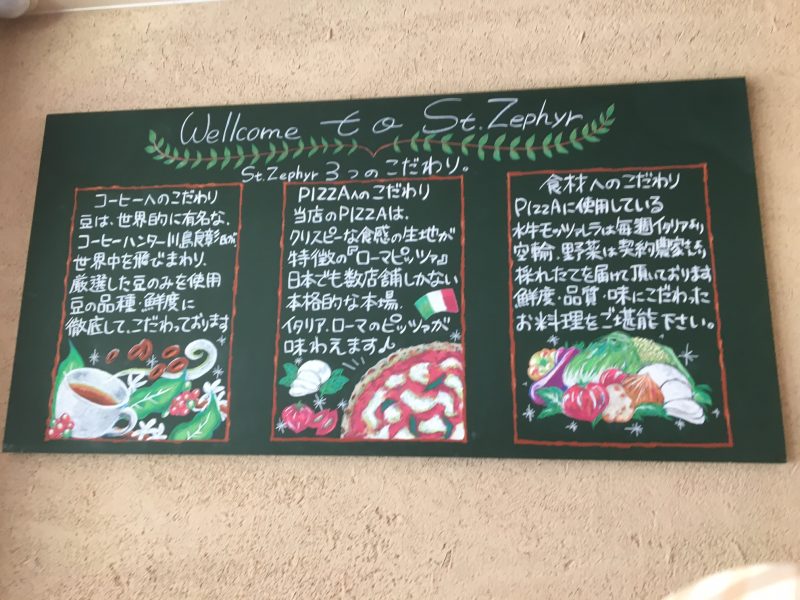 Wellcome to St.Zephyr
St.Zephyr 3つのこだわり。
コーヒーへのこだわり
豆は、世界的に有名な、
コーヒーハンター川島良彰氏が
世界中を飛びまわり、
厳選した豆のみを使用
豆の品種・鮮度に
徹底して、こだわっております
PIZZAへのこだわり
当店のPIZZAは、
クリスピーな食感の生地が
特徴の『ローマピッツァ』
日本でも数店舗しかない
本格的な本場、
イタリア、ローマのピッツァが
味わえます♪
食材へのこだわり
PIZZAに使用している
水牛モッツァレラは毎週イタリアより
空輸、野菜は契約農家さんより
採れたてを届けて頂いております
鮮度・品質・味にこだわった
お料理をご堪能下さい。